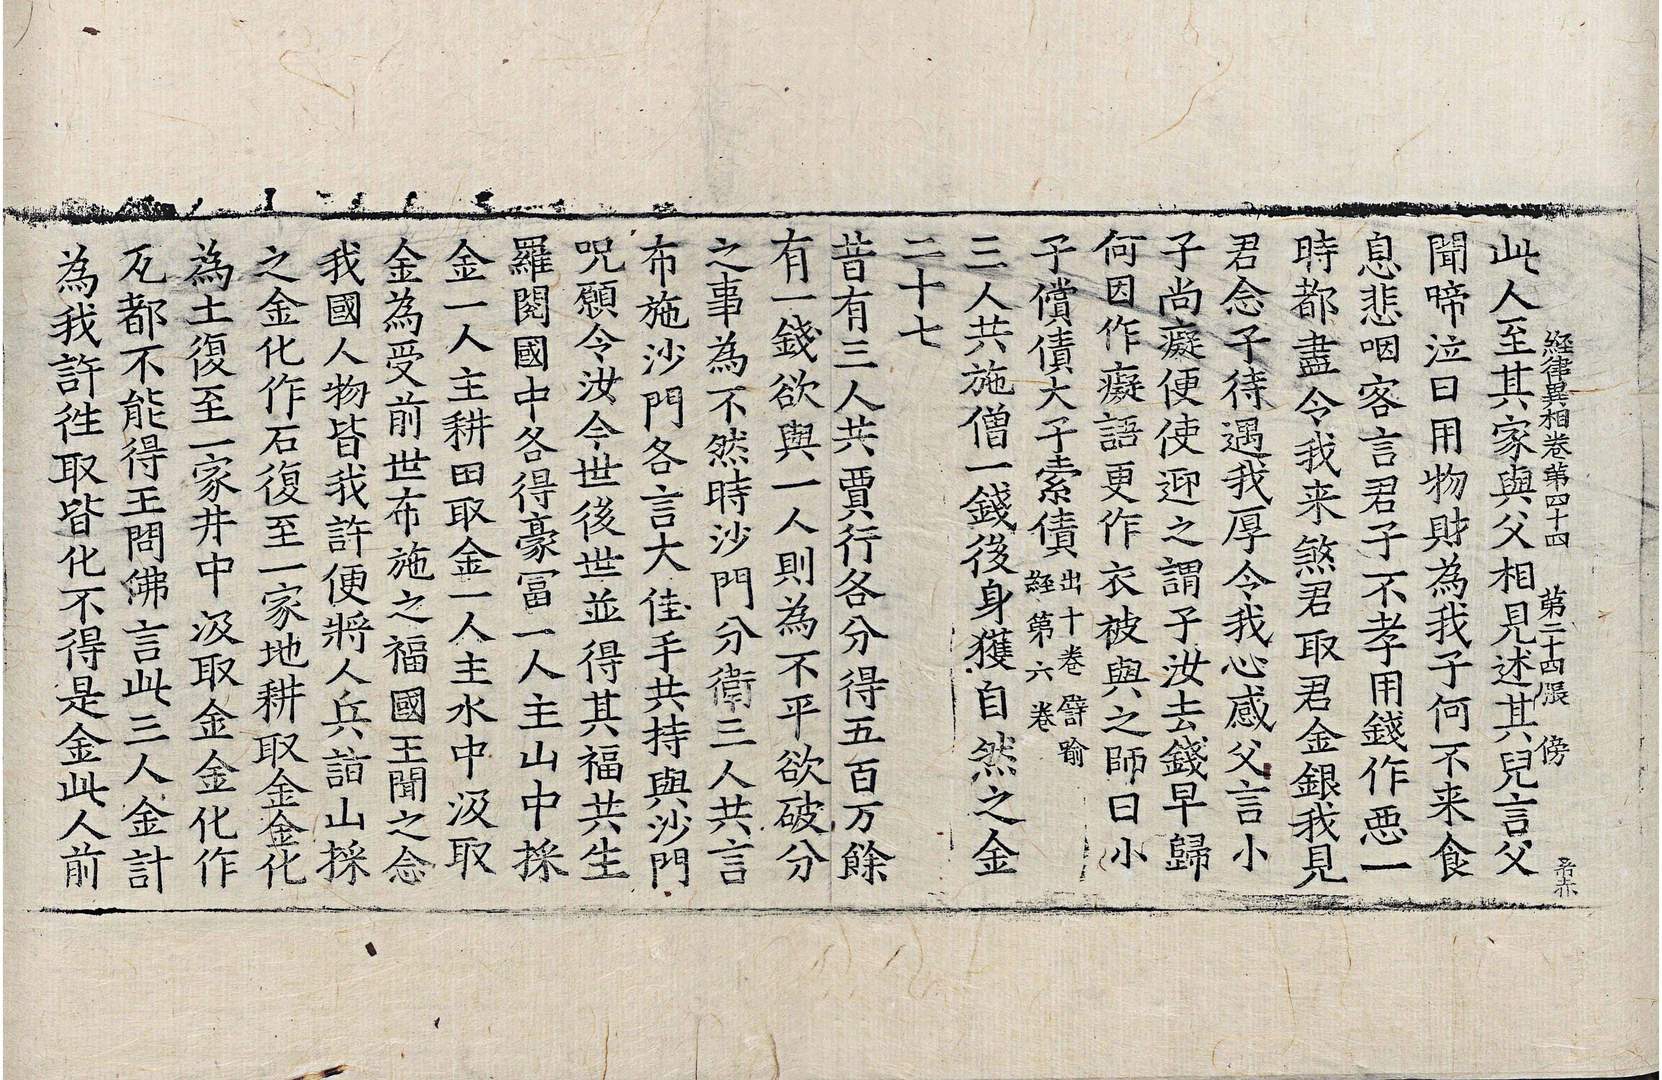 経律異相卷第四十四 第二十四張 傍
此人至其家與父相見述其兒言父
聞啼泣曰用物財為我子何不来食
息悲咽客言君子不孝用錢作惡一
時都盡令我来煞君取君金銀我見
君念子待遇我厚令我心感父言小
子尚癡便使迎之謂子汝去錢早歸
何因作癡語更作衣被與之師曰小
子償債大子索債出十卷譬喻経第六卷
三人共施僧一錢後身獲自然之金
二十七
昔有三人共賈行各分得五百万餘
有一錢欲與一人則為不平欲破分
之事為不然時沙門分衛三人共言
布施沙門各言大佳手共持與沙門
呪願令汝今世後世並得其福共生
羅閱國中各得豪冨一人主山中採
金一人主耕田取金一人主水中汲取
金為受前世布施之福國王聞之念
我國人物皆我許便將人兵詣山採
之金化作石復至一家地耕取金金化
為土復至一家井中汲取金金化作
瓦都不能得王問佛言此三人金計
為我許徃取皆化不得是金此人前